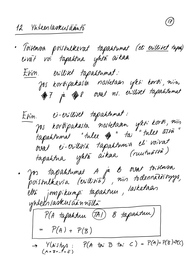 12. Yhteenlaskusääntö
• Toisensa poissulkevat tapahtumat (eli erilliset tapaht.)
eivät voi tapahtua yhtä aikaa
Esim. erilliset tapahtumat:
Jos korttipakasta nostetaan yksi kortti, niin
♠7 ja ♦8 ovat ns. erilliset tapahtumat
Esim. ei-erilliset tapahtumat:
Jos korttipakasta nostetaan yksi kortti, niin
tapahtumat "tulee ♦" ta "tulee ässä"
ovat ei-erillisiä tapahtumia ei voivat
tapahtua yhtä aikaa (ruutuässä)
• Jos tapahtumat A ja B ovat toisensa
poissulkevia (erillisiä), niin todennäköisyys,
että jompikumpi tapahtuu, lasketaan
yhteenlaskusäännöllä
P(A tapahtuu TAI B tapahtuu)
= P(A) + P(B)
→ Yleistys: P(A tai B tai C) = P(A)+P(B)+P(C)